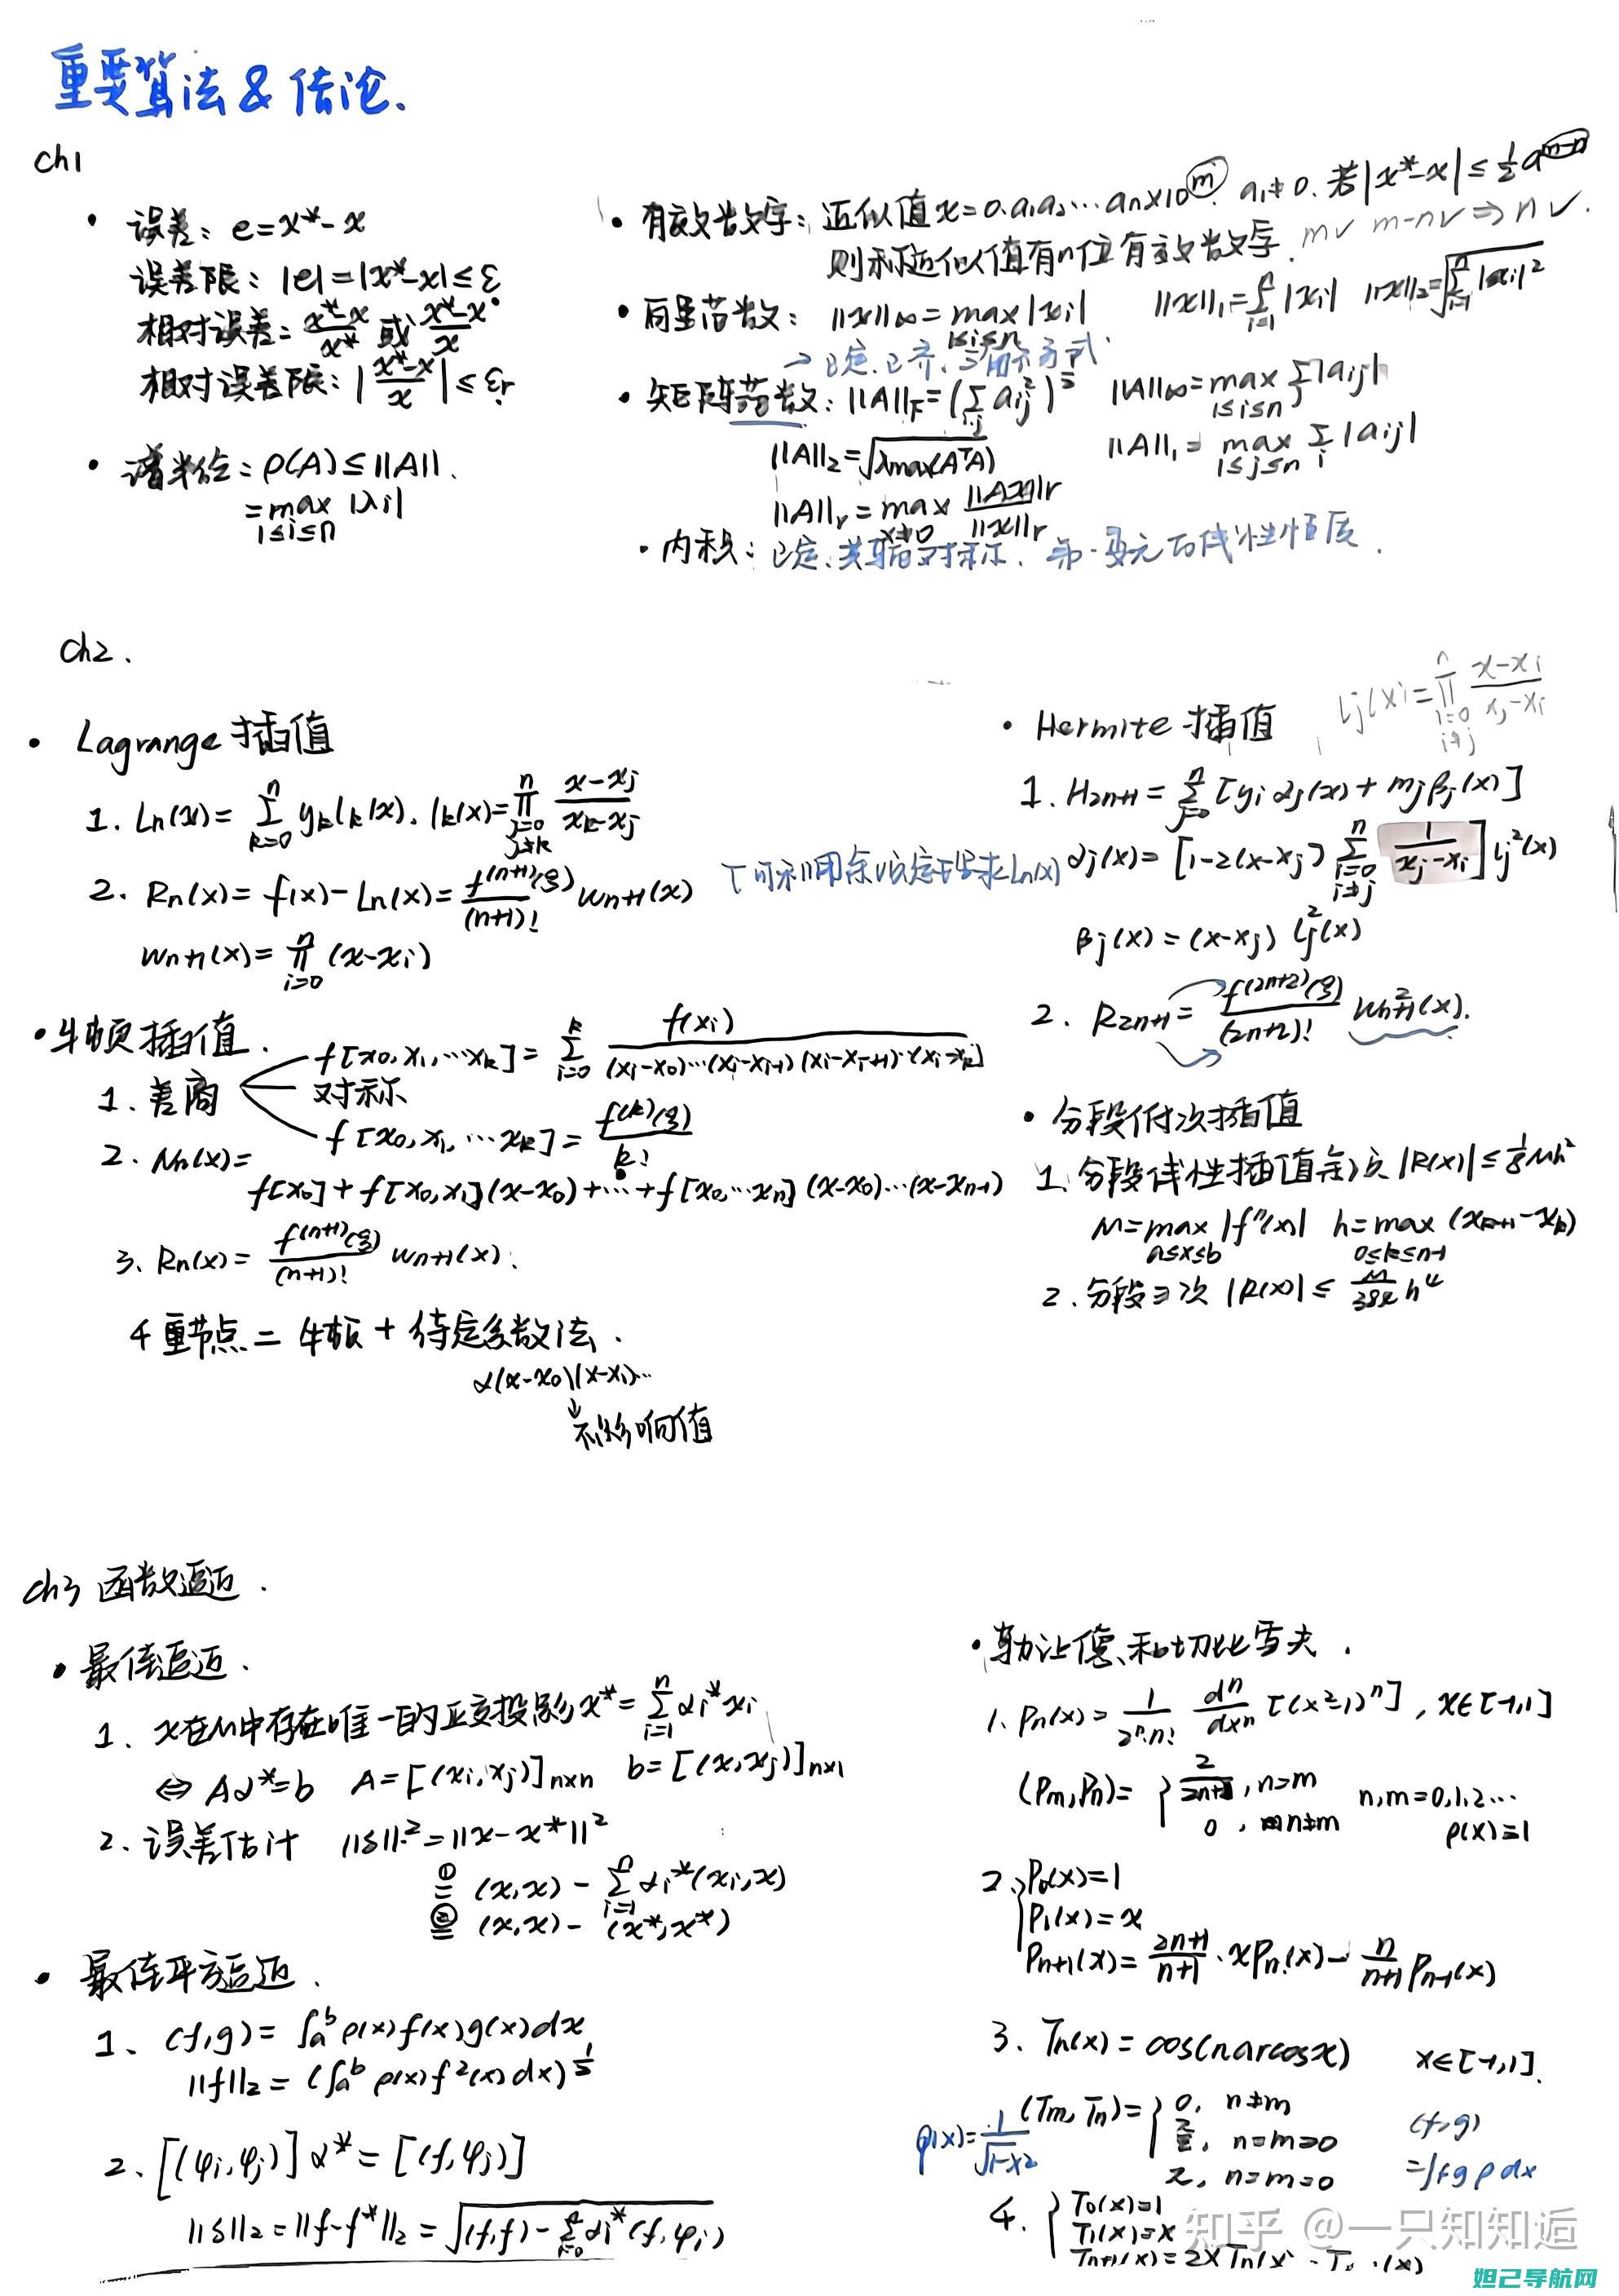 重要算法 & 结论.
ch1
· 误差: e=x*-x
误差限: |e|=|x*-x|≤ε
相对误差= (x*-x)/x* 或 (x*-x)/x
相对误差限: |(x*-x)/x| ≤ εr
· 谱半径: ρ(A)≤||A||.
=max 1≤i≤n |λi|
· 有效数字: 近似值 x=0.a1a2…an×10^m. a1≠0. 若|x*-x|≤½a^(m-n)
则称近似值有n位有效数字. m✓ m-n✓ ⇒ n✓.
· 向量范数: ||x||∞=max 1≤i≤n |xi| ||x||1=Σ i=1 n |xi| ||x||2=√(Σ i=1 n |xi|²)
→ 正定.正齐.三角不等式.
· 矩阵范数: ||A||F=(Σ i,j aij²)^½ ||A||∞=max 1≤i≤n Σ j |aij|
||A||2=√(λmax(AᵀA)) ||A||1=max 1≤j≤n Σ i |aij|
||A||r=max x≠0 ||Ax||r/||x||r
· 内积: 正定.共轭对称. 第一变元的线性性质.
ch2.
· Lagrange 插值
1. Ln(x)= Σ k=0 n yk lk(x). lk(x)=Π j=0 j≠k n (x-xj)/(xk-xj)
2. Rn(x)=f(x)-Ln(x)= f^(n+1)(ξ)/(n+1)! wn+1(x)
wn+1(x)= Π i=0 n (x-xi)
· 牛顿插值.
1. 差商
f[x0,x1,…xk]= Σ i=0 k f(xi)/((xi-x0)…(xi-xi-1)(xi-xi+1)…(xi-xk))
对称
f[x0,x1,…xk]= f^(k)(ξ)/k!
2. Nn(x)=
f[x0]+f[x0,x1](x-x0)+…+f[x0,…xn](x-x0)…(x-xn-1)
3. Rn(x)= f^(n+1)(ξ)/(n+1)! wn+1(x).
4 重节点 = 牛顿 + 待定系数法.
α(x-x0)(x-x1)…
↓
不影响值
· Hermite 插值 lj(x)=Π i=0 i≠j n (x-xi)/(xj-xi)
1. H2n+1= Σ j=0 n [yi αj(x)+mj βj(x)]
αj(x)= [1-2(x-xj) Σ i=0 i≠j n 1/(xj-xi)] lj²(x)
βj(x)=(x-xj) lj²(x)
2. R2n+1= f^(2n+2)(ξ)/(2n+2)! wn+1²(x).
· 分段低次插值
1. 分段线性插值余项 |R(x)|≤⅛Mh²
M=max a≤x≤b |f''(x)| h=max 0≤k≤n-1 (xk+1-xk)
2. 分段三次 |R(x)|≤ M/384 h⁴
ch3 函数逼近.
· 最佳逼近.
1. x在M中存在唯一的正交投影x*= Σ i=1 n αi*xi
⇔ Aα*=b A=[(xi,xj)]n×n b=[(x,xj)]n×1
2. 误差估计 ||δ||²=||x-x*||²
①= (x,x)- Σ i=1 n αi*(xi,x)
②= (x,x)-(x*,x*)
· 最佳平方逼近.
1. (f,g)=∫a^b ρ(x)f(x)g(x)dx
||f||2=(∫a^b ρ(x)f²(x)dx)^½
2. [(φi,φj)]α*=[(f,φj)]
||δ||2=||f-f*||2=√((f,f)-Σ i=0 n αi*(f,φi))
· 勒让德和切比雪夫.
1. Pn(x)= 1/(2ⁿ·n!) dⁿ/dxⁿ [(x²-1)ⁿ], x∈[-1,1]
(Pm,Pn)= { 2/(2n+1), n=m n,m=0,1,2…
0, n≠m ρ(x)=1
2. { P0(x)=1
P1(x)=x
Pn+1(x)= (2n+1)/(n+1)·xPn(x)- n/(n+1) Pn-1(x)
3. Tn(x)=cos(narcosx) x∈[-1,1].
(Tm,Tn)= { 0, n≠m
π/2, n=m≠0
π, n=m=0
ρ(x)=1/√(1-x²)
(f,g)
=∫fgρdx
4. { T0(x)=1
T1(x)=x
Tn+1(x)=2xTn(x)-
知乎 @一只知知逅
妲己导航网